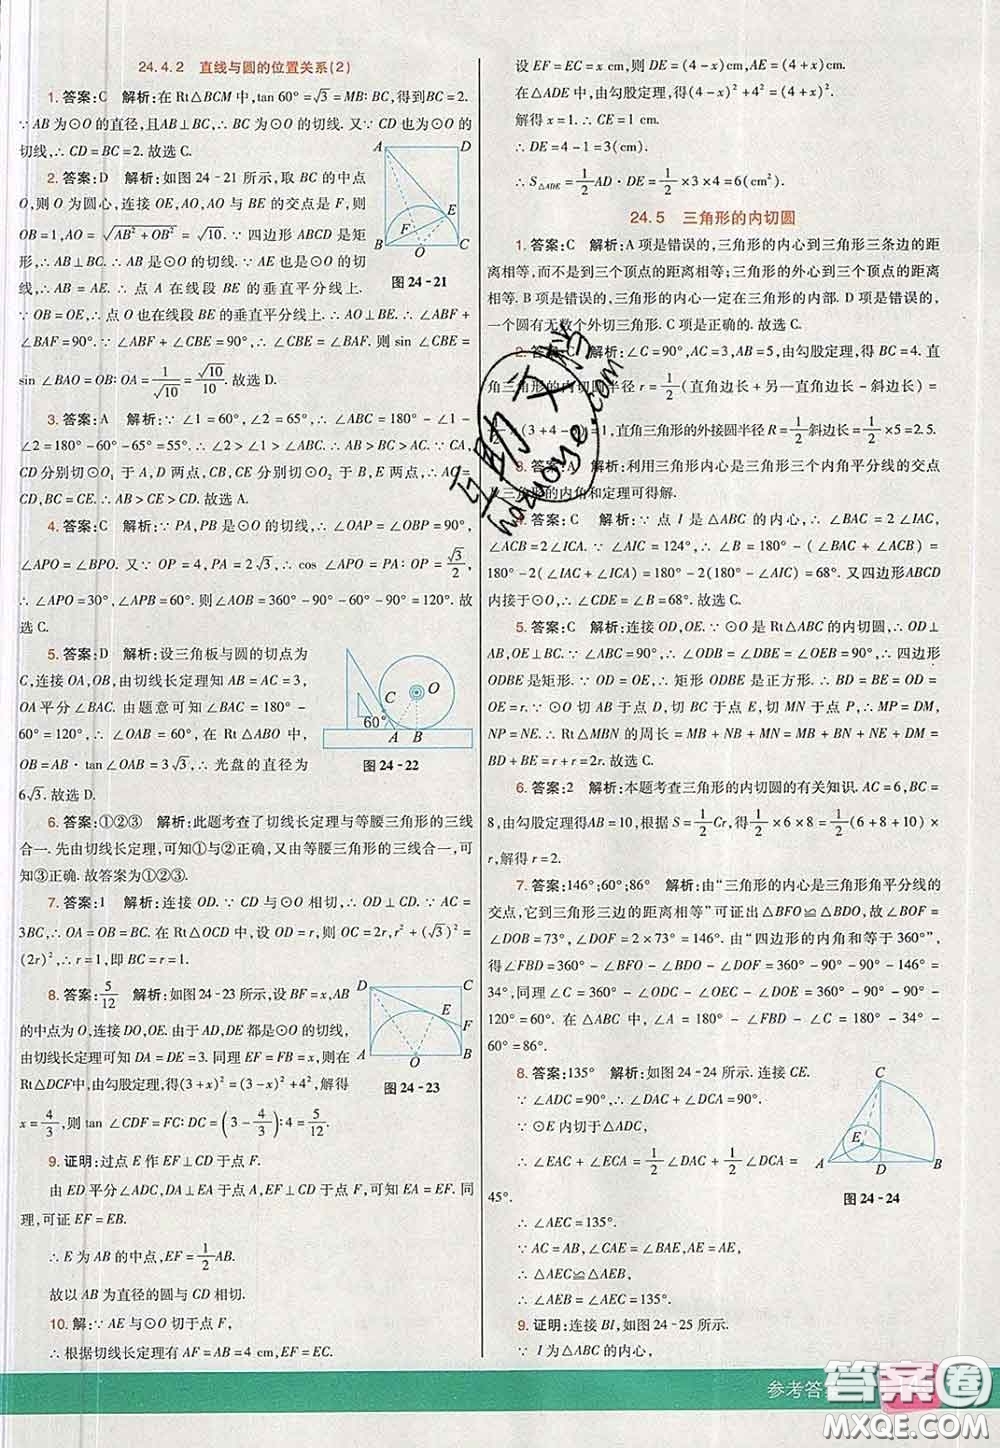 24.4.2 直线与圆的位置关系(2)
1. 答案:C 解析:在 Rt△BCM 中,tan 60°=√3=MB:BC,得到BC=2.
∵AB 为⊙O 的直径,且AB⊥BC,∴BC 为⊙O 的切线. 又∵CD 也为⊙O 的
切线,∴CD=BC=2. 故选 C.
2. 答案:D 解析:如图 24-21 所示,取 BC 的中点
O,以 O 为圆心,连接 OE,AO,AO 与 BE 的交点是 F,则
OB=1,AO=√(AB²+OB²)=√10. ∵四边形 ABCD 是矩
形,∴AB⊥BC. ∵AE=AB,∴点 A 在线段 BE 的垂直平分线上.
∵OB=OE,∴点 O 也在线段 BE 的垂直平分线上. ∴AO⊥BE. ∴∠ABF+
∠BAF=90°. ∵∠ABF+∠CBE=90°,∴∠CBE=∠BAF. 则sin ∠CBE=
sin ∠BAO=OB:OA=1/√10=√10/10. 故选 D.
3. 答案:A 解析:∵∠1=60°,∠2=65°,∴∠ABC=180°-∠1-
∠2=180°-60°-65°=55°. ∴∠2>∠1>∠ABC. ∴AB>BC>AC. ∵CA,
CD 分别切⊙O₁ 于 A,D 两点,CB,CE 分别切⊙O₂ 于 B,E 两点,∴AC=
CD,BC=CE. ∴AB>CE>CD. 故选 A.
4. 答案:C 解析:∵PA,PB 是⊙O 的切线,∴∠OAP=∠OBP=90°,
∠APO=∠BPO. 又∵OP=4,PA=2√3,∴cos ∠APO=PA:OP=√3/2,
∴∠APO=30°,∠APB=60°. 则∠AOB=360°-90°-90°-60°=120°. 故
选 C.
5. 答案:D 解析:设三角板与圆的切点为
C,连接 OA,OB,由切线长定理知 AB=AC=3,
OA平分∠BAC. 由题意可知∠BAC=180°-
60°=120°,∴∠OAB=60°. 在 Rt△ABO 中,
OB=AB·tan∠OAB=3√3,∴光盘的直径为
6√3. 故选 D.
6. 答案:①②③ 解析:此题考查了切线长定理与等腰三角形的三线
合一. 先由切线长定理,可知①与②正确,又由等腰三角形的三线合一,可
知③正确. 故答案为①②③.
7. 答案:1 解析:连接 OD. ∵CD 与⊙O 相切,∴OD⊥CD. ∵AC=
3BC,∴OC=2OB. 在 Rt△OCD 中,设 OD=r,则 OC=2r,r²+(√3)²=
(2r)²,∴r=1,即 BC=r=1.
8. 答案:5/12 解析:如图 24-23 所示,设 BF=x,AB
的中点为 O,连接DO,OE. 由于 AD,DE 都是⊙O 的切线,
由切线长定理可知 DA=DE=3. 同理 EF=FB=x. 在
Rt△DCF中,由勾股定理,得(3+x)²=(3-x)²+4²,解得
x=4/3,则 tan ∠CDF=FC:DC=(3-4/3):4=5/12.
9. 证明:过点 E 作 EF⊥CD 于点 F.
由 ED平分∠ADC,DA⊥EA 于点 A,EF⊥CD 于点 F,可知 EA=EF. 同
理,可证 EF=EB.
∴E 为 AB 的中点,EF=1/2AB.
故以 AB 为直径的圆与 CD 相切.
10. 解:∵AE与⊙O 切于点 F,
∴根据切线长定理有 AF=AB=4 cm,EF=EC.
A D E F B O C
图 24-21
C O 60° A B
图 24-22
D C E F A O B
图 24-23
设 EF=EC=x cm,则 DE=(4-x)cm,AE=(4+x)cm.
在△ADE 中,由勾股定理,得(4-x)²+4²=(4+x)².
解得 x=1. ∴CE=1 cm.
∴DE=4-1=3(cm).
∴S△ADE=1/2AD·DE=1/2×3×4=6(cm²).
24.5 三角形的内切圆
1. 答案:C 解析:A 项是错误的,三角形的内心到三角形三条边的距
离相等,而不是到三个顶点的距离相等;三角形的外心到三个顶点的距离
相等. B 项是错误的,三角形的内心一定在三角形的内部. D 项是错误的,
一个圆有无数个外切三角形. C 项是正确的. 故选 C.
2. 答案:C 解析:∠C=90°,AC=3,AB=5,由勾股定理,得 BC=4. 直
角三角形的内切圆半径 r=1/2(直角边长+另一直角边长-斜边长)=
×(3+4-  1,直角三角形的外接圆半径 R=1/2斜边长=1/2×5=2.5.
3. 答案:A 解析:利用三角形内心是三角形三个内角平分线的交点
及三角形的内角和定理可得解.
4. 答案:C 解析:∵点 I 是△ABC 的内心,∴∠BAC=2∠IAC,
∠ACB=2∠ICA. ∵∠AIC=124°,∴∠B=180°-(∠BAC+∠ACB)=
180°-2(∠IAC+∠ICA)=180°-2(180°-∠AIC)=68°. 又四边形ABCD
内接于⊙O,∴∠CDE=∠B=68°. 故选 C.
5. 答案:C 解析:连接 OD,OE. ∵⊙O 是 Rt△ABC 的内切圆,∴OD⊥
AB,OE⊥BC. 又∵∠B=90°,∴∠ODB=∠DBE=∠OEB=90°,∴四边形
ODBE 是矩形. ∵OD=OE,∴矩形 ODBE 是正方形. ∴BD=BE=OD=
OE=r. ∵⊙O 切 AB 于点 D,切 BC 于点 E,切 MN 于点 P,∴MP=DM,
NP=NE. ∴Rt△MBN 的周长=MB+NB+MN=MB+BN+NE+DM=
BD+BE=r+r=2r. 故选 C.
6. 答案:2 解析:本题考查三角形的内切圆的有关知识. AC=6,BC=
8,由勾股定理得AB=10,根据 S=1/2Cr,得1/2×6×8=1/2(6+8+10)×
r,解得 r=2.
7. 答案:146°;60°;86° 解析:由“三角形的内心是三角形角平分线的
交点,它到三角形三边的距离相等”可证出△BFO≌△BDO,故∠BOF=
∠DOB=73°,∠DOF=2×73°=146°. 由“四边形的内角和等于 360°”,
得∠FBD=360°-∠BFO-∠BDO-∠DOF=360°-90°-90°-146°=
34°,同理∠C=360°-90°-90°-120°=60°. 在△ABC 中,∠A=180°-∠FBD-∠C=180°-34°-
60°=86°.
8. 答案:135° 解析:如图 24-24 所示. 连接 CE.
∵∠ADC=90°,∴∠DAC+∠DCA=90°.
∵⊙E 内切于△ADC,
∴∠EAC+∠ECA=1/2∠DAC+1/2∠DCA=
45°.
∴∠AEC=135°.
∵AC=AB,∠CAE=∠BAE,AE=AE,
∴△AEC≌△AEB,
∴∠AEB=∠AEC=135°.
C E A D B
图 24-24
9. 证明:连接 BI,如图 24-25 所示.
∵I为△ABC 的内心,
互助文档
hdzuoye.com
参考答案
答案圈
MXQE.COM